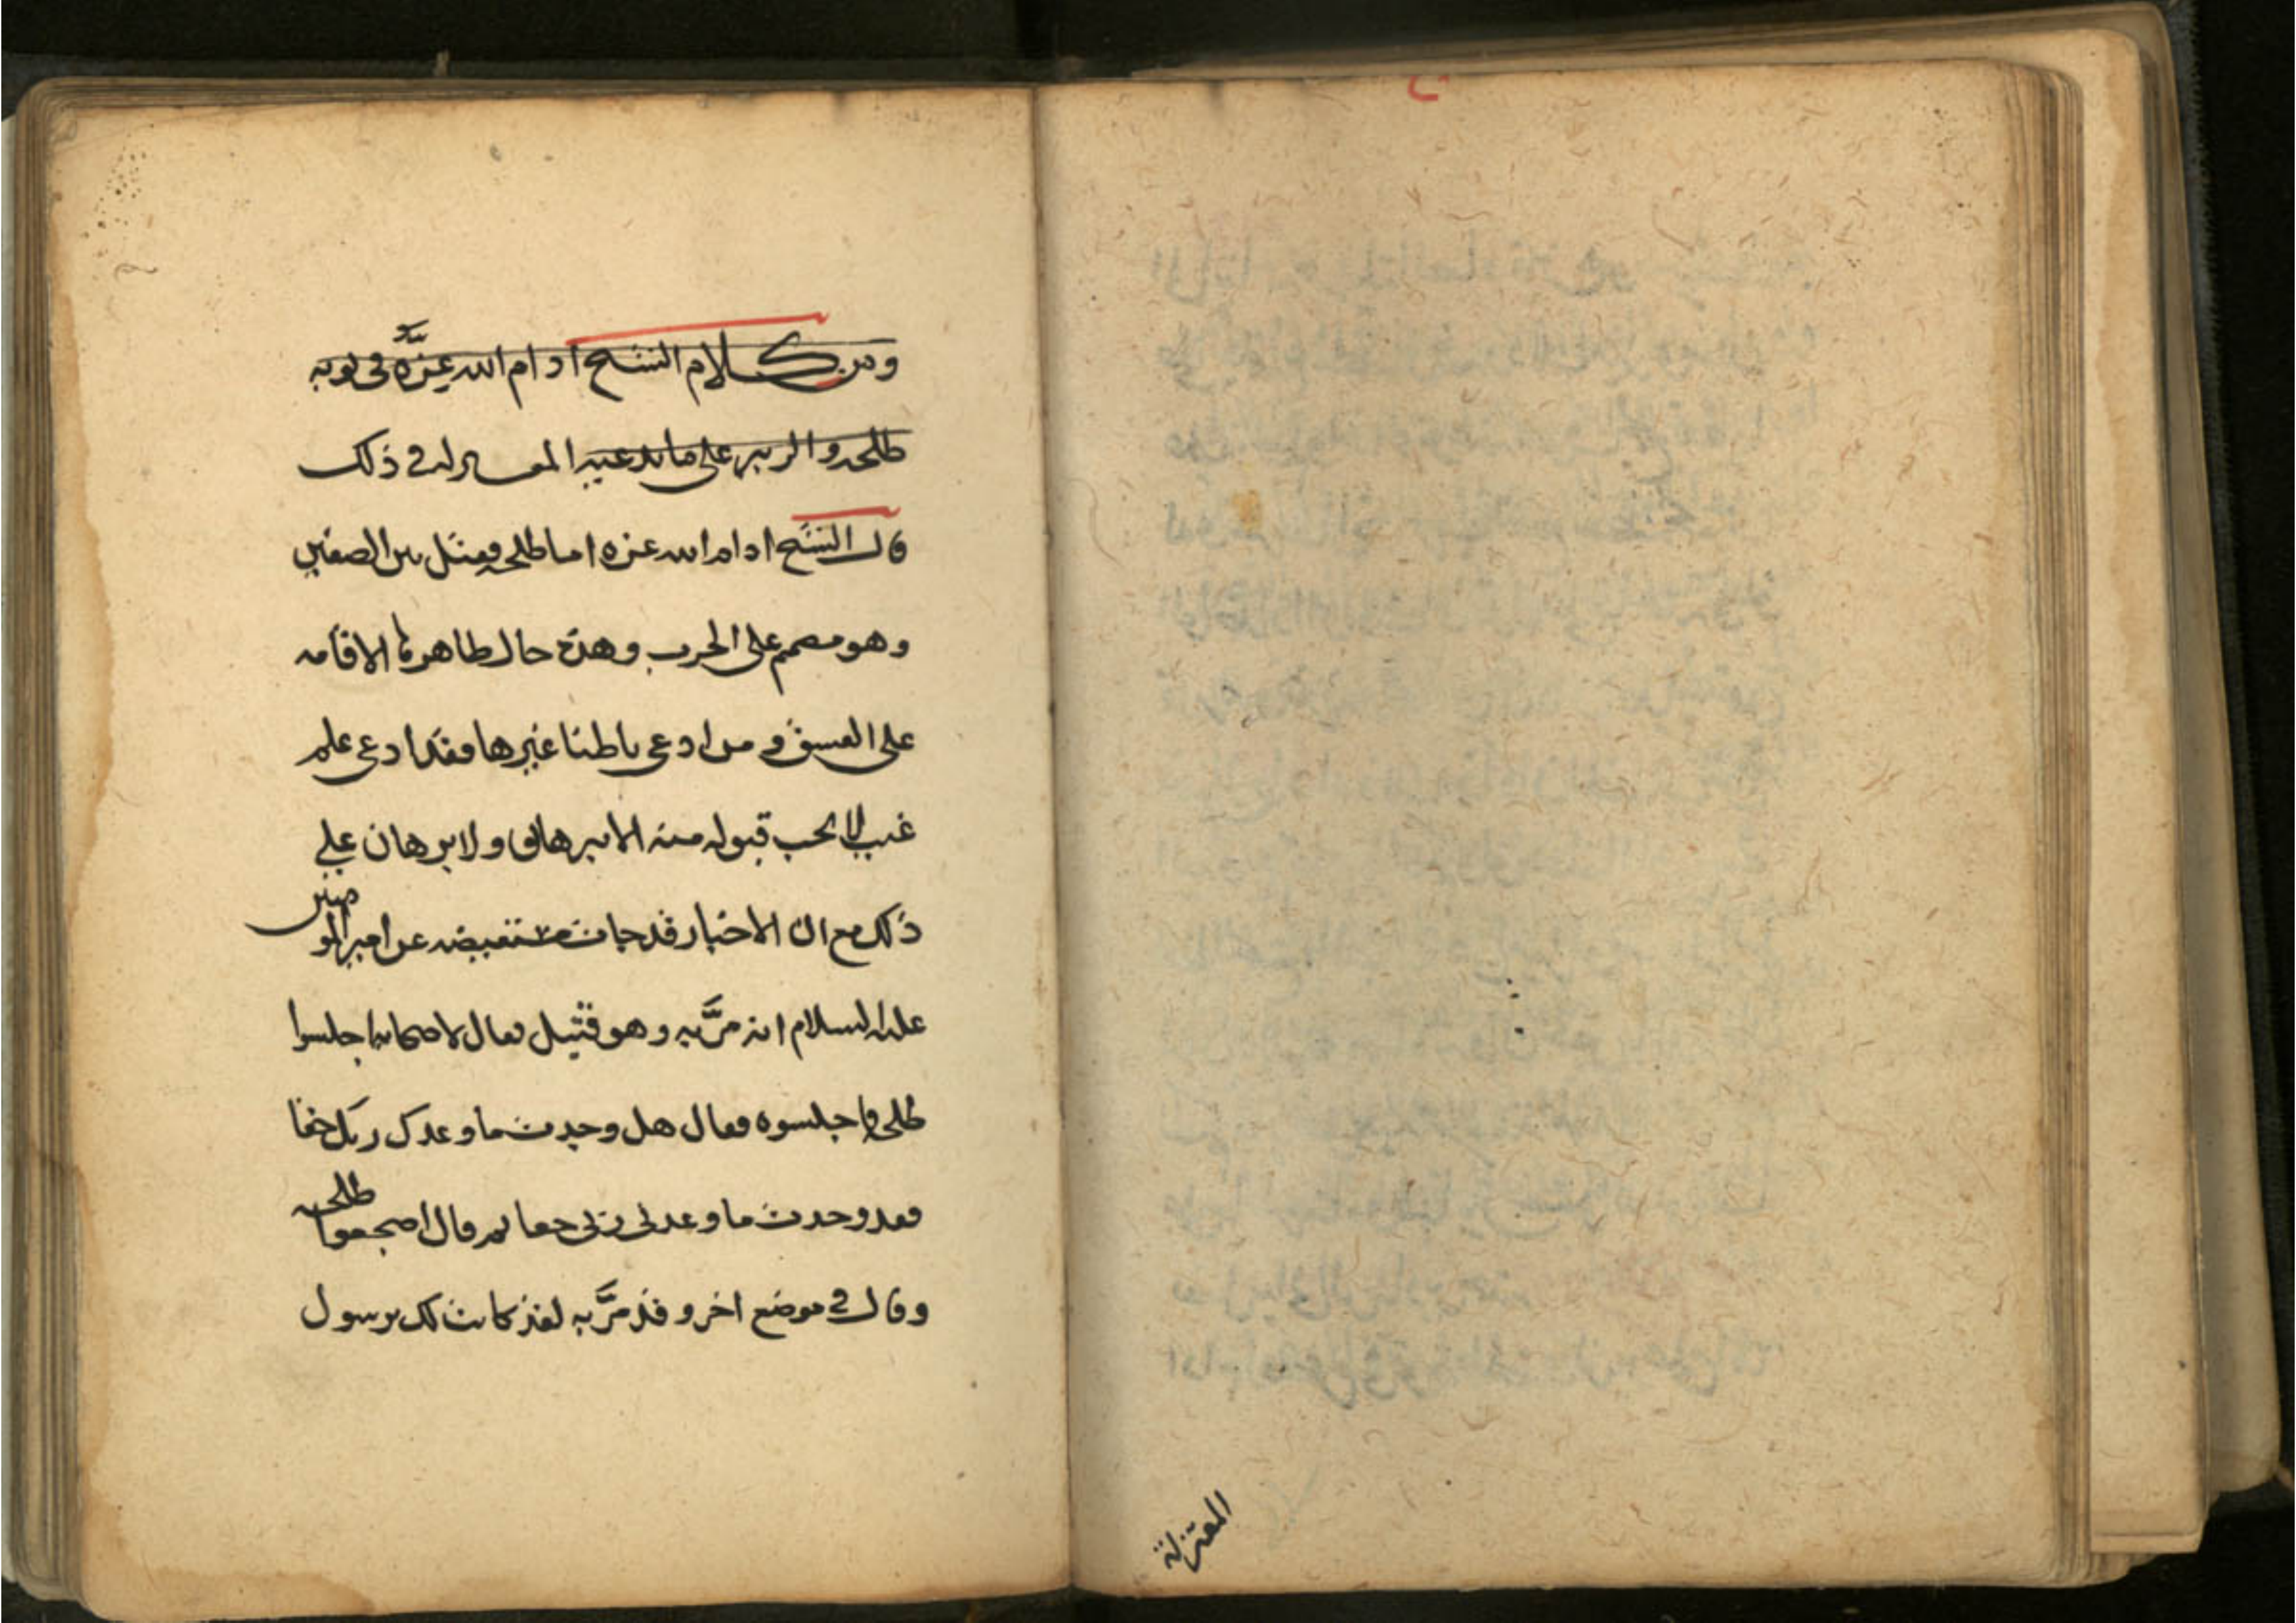 المعتزلة
ومن كلام الشيخ ادام الله عزه في توبه
طلحه والزبير على ما تدعيه المعتزله في ذلك
قال الشيخ ادام الله عزه اما طلحه فقتل بين الصفين
وهو مصمم على الحرب وهذه حال ظاهرها الاقامه
على الفسق ومن ادعى باطنا غيرها فقد ادعى علم
غيب لا يجب قبوله منه الا ببرهان ولا برهان على
ذلك مع ان الاخبار قد جات مستفيضه عن امير المومنين
عليه السلام انه مرَّ به وهو قتيل فقال لاصحابه اجلسوا
طلحه فاجلسوه فقال هل وجدت ما وعدك ربك حقا
فقد وجدت ما وعدني ربي حقا ثم قال اضجعوا طلحه
وقال في موضع اخر وقد مرَّ به لقد كانت لك برسول